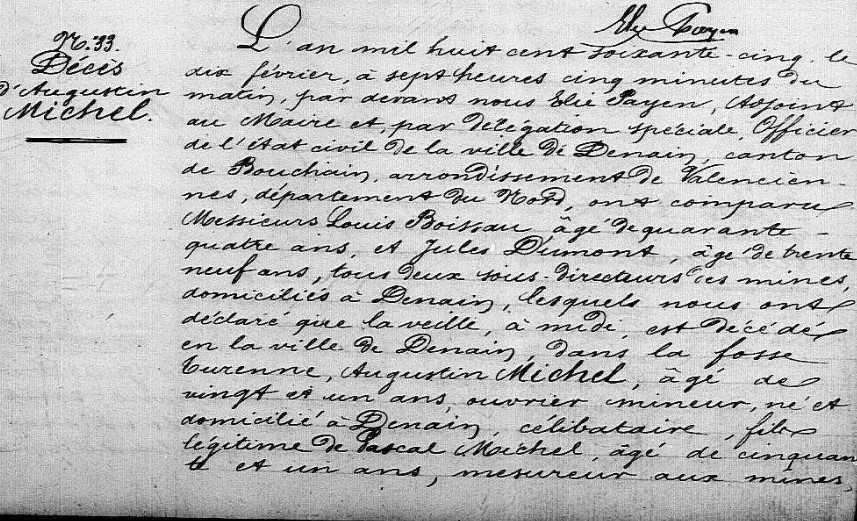 Elie Payen
N. 33.
Décès
d'Augustin
Michel.
L'an mil huit cent soixante-cinq, le
dix février, à sept heures cinq minutes du
matin, par devant nous Elie Payen, Adjoint
au Maire et, par délégation spéciale, Officier
de l'état civil de la ville de Denain, canton
de Bouchain, arrondissement de Valencien-
nes, département du Nord, ont comparu
Messieurs Louis Boissau âgé de quarante-
quatre ans, et Jules Dumont, âgé de trente
neuf ans, tous deux sous-directeurs des mines,
domiciliés à Denain, lesquels nous ont
déclaré que la veille, à midi, est décédé
en la ville de Denain, dans la fosse
Turenne, Augustin Michel, âgé de
vingt et un ans, ouvrier mineur, né et
domicilié à Denain, célibataire, fils
légitime de Pascal Michel, âgé de cinquan
te et un ans, mesureur aux mines,